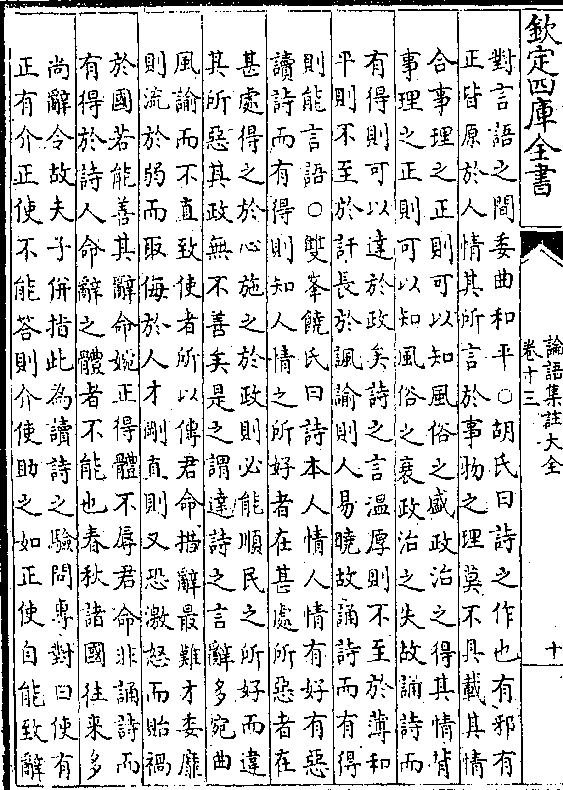 欽定四庫全書
論語集註大全
卷十三
十
對言語之間委曲和平○胡氏曰詩之作也有邪有
正皆原於人情其所言於事物之理莫不具載其情
合事理之正則可以知風俗之盛政治之得其情背
事理之正則可以知風俗之衰政治之失故誦詩而
有得則可以達於政矣詩之言溫厚則不至於薄和
平則不至於訐長於諷諭則人易曉故誦詩而有得
則能言語○雙峯饒氏曰詩本人情人情有好有惡
讀詩而有得則知人情之所好者在甚處所惡者在
甚處得之於心施之於政則必能順民之所好而違
其所惡其政無不善矣是之謂達詩之言辭多宛曲
風諭而不直致使者所以傳君命措辭最難才委靡
則流於弱而取侮於人才剛直則又恐激怒而貽禍
於國若能善其辭命婉正得體不辱君命非誦詩而
有得於詩人命辭之體者不能也春秋諸國往來多
尚辭令故夫子併指此為讀詩之驗問專對曰使有
正有介正使不能答則介使助之如正使自能致辭